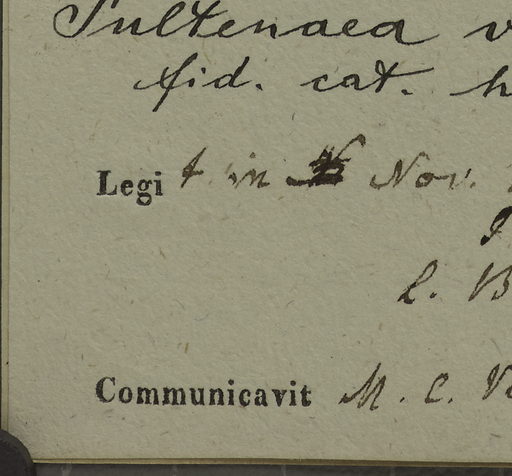 Pultenaea v
fid. cat. h
Legit in Nov.
L. B
Communicavit M. C. V